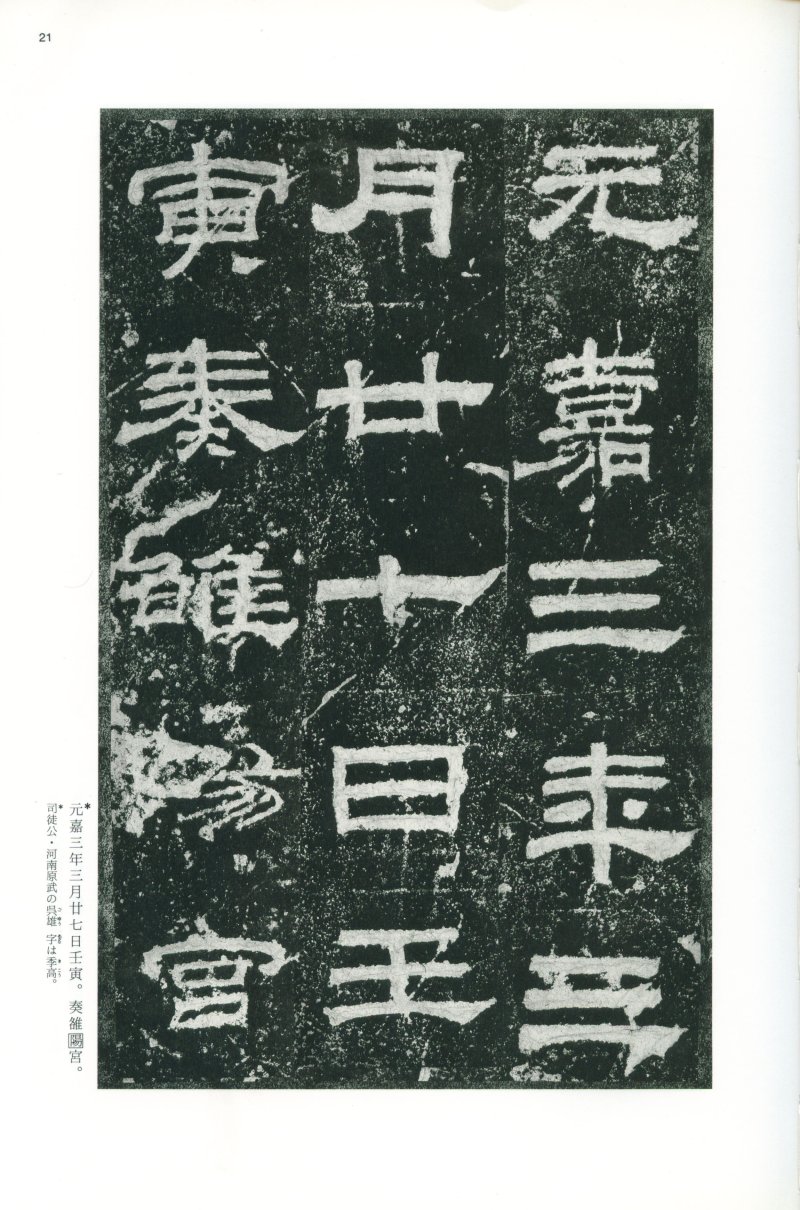 21
元嘉三年三
月廿七日壬
寅奏雒陽宮
*元嘉三年三月廿七日壬寅。奏雒陽宮。
*司徒公・河南原武の呉雄 字は季高。